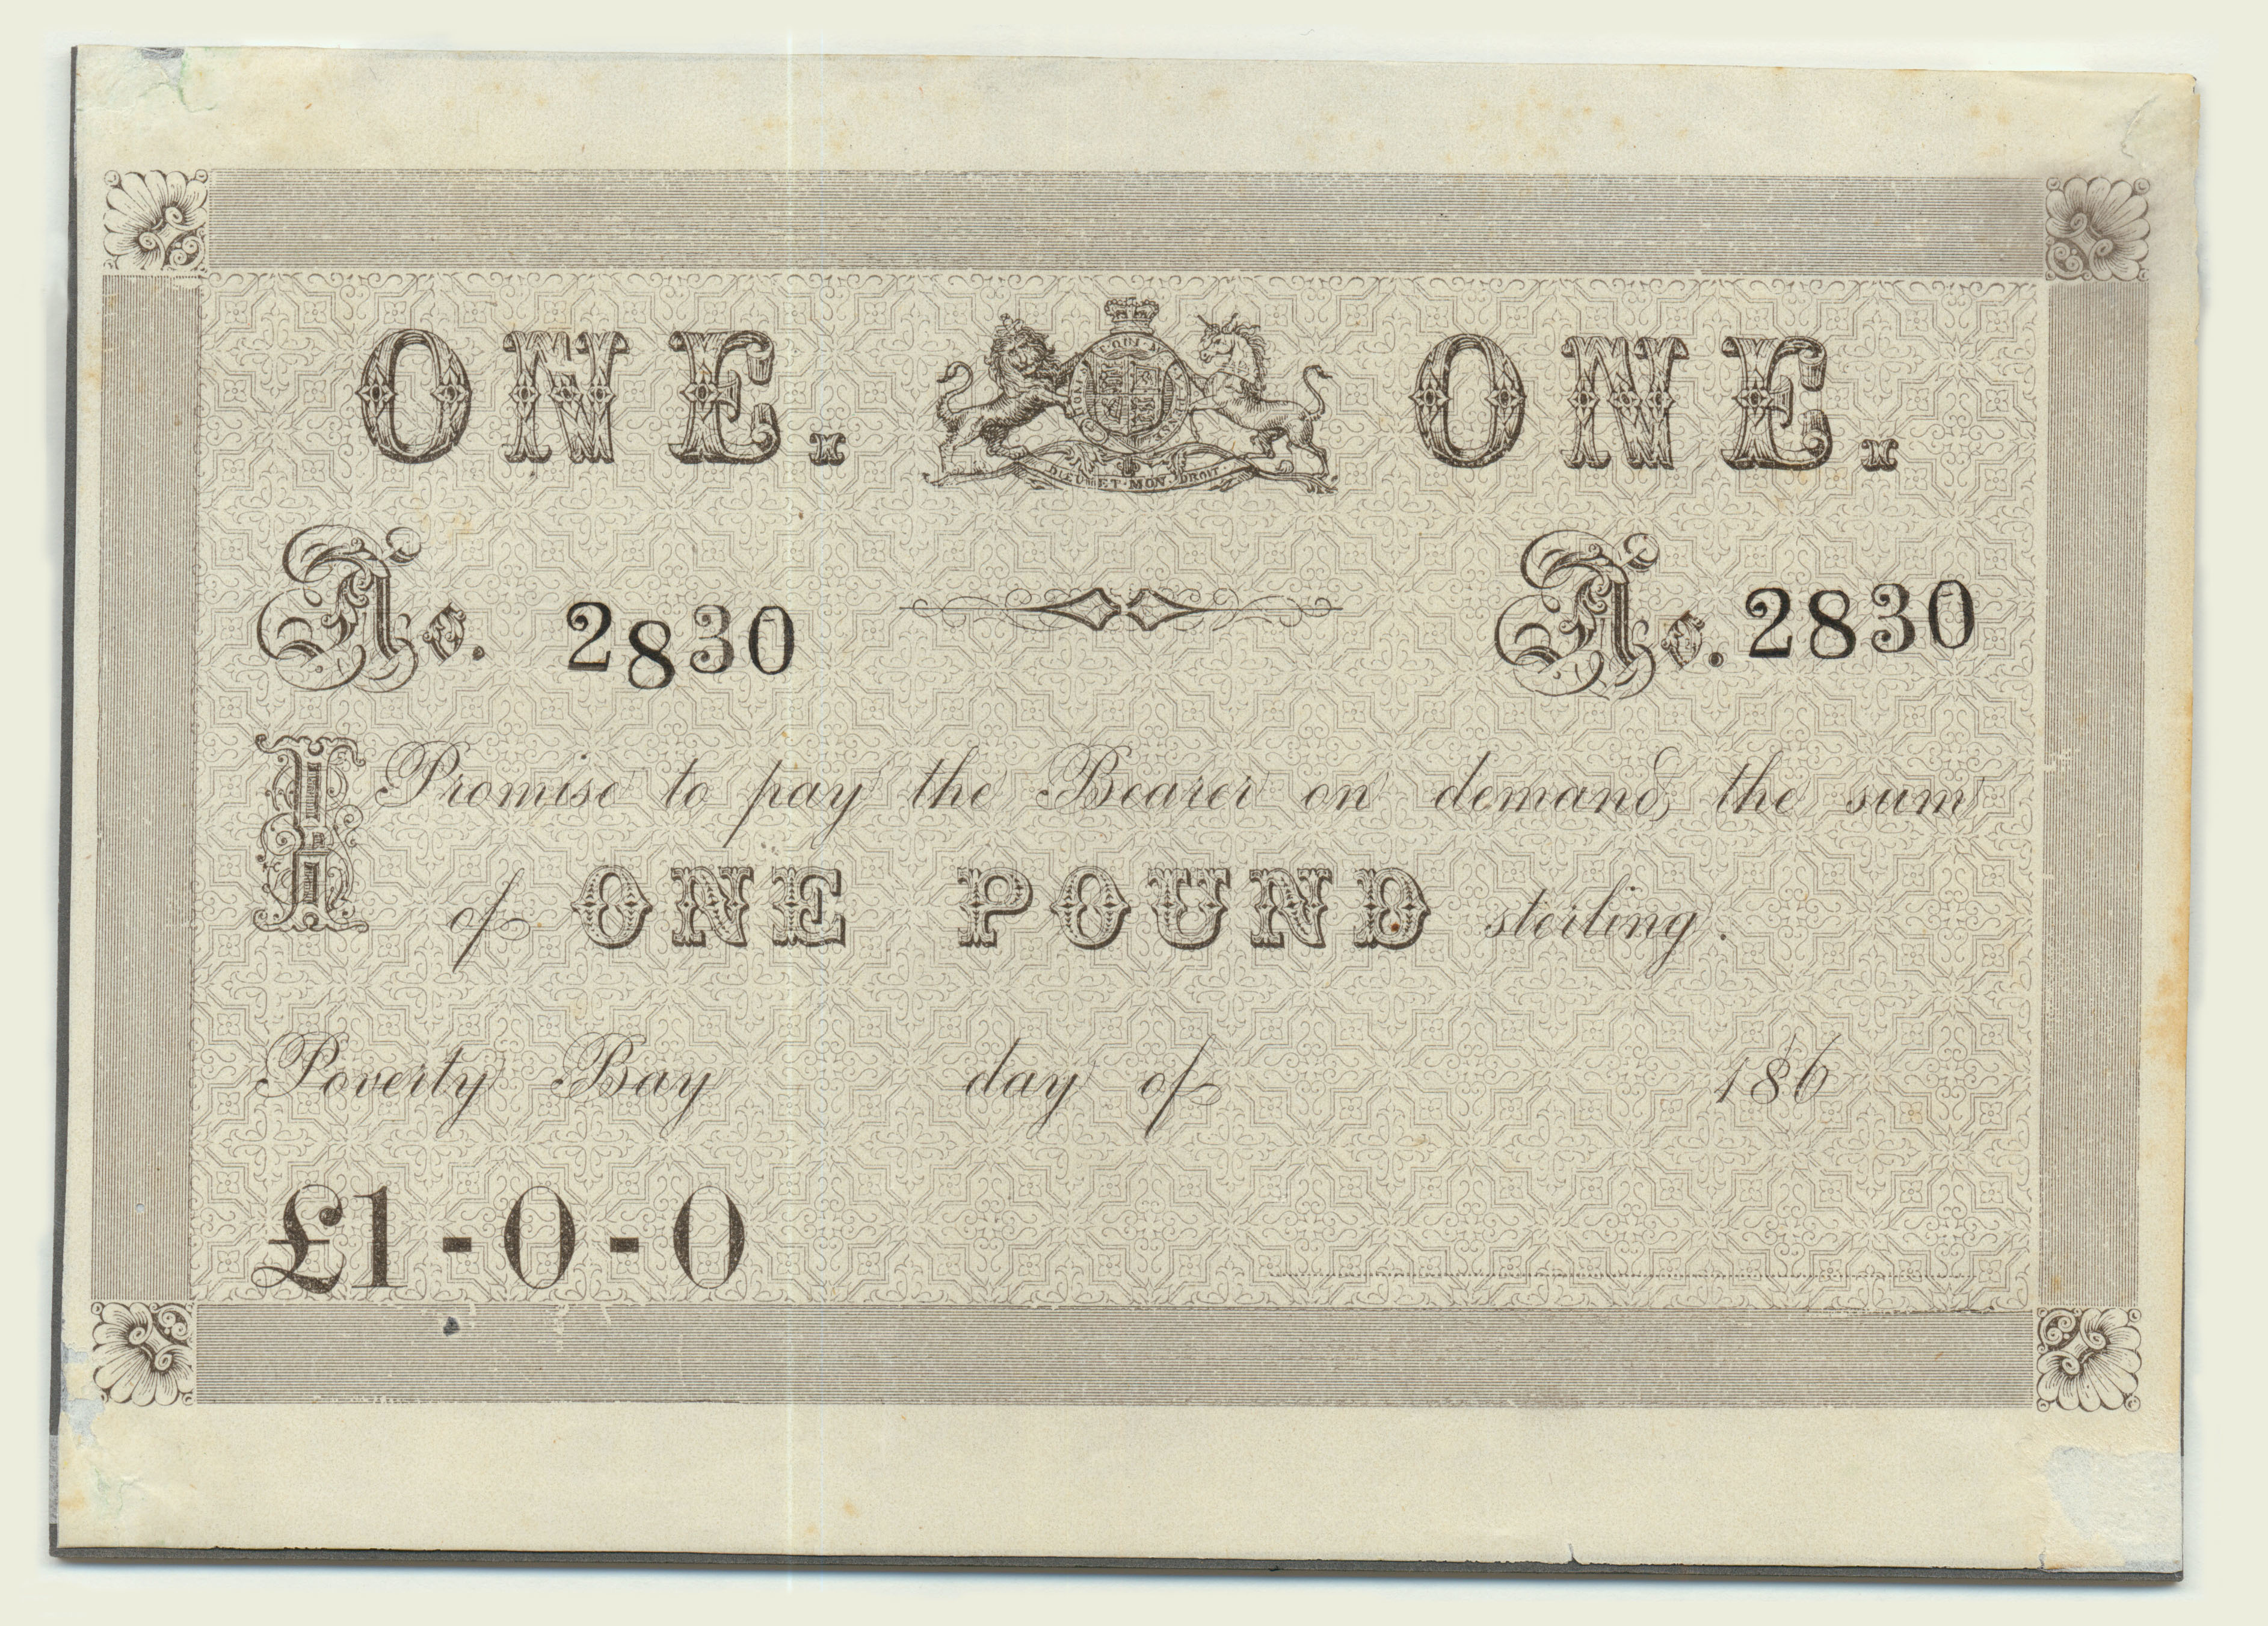 ONE. ONE.
DIEU ET MON DROIT
No. 2830 No. 2830
I Promise to pay the Bearer on demand, the sum
of ONE POUND sterling.
Poverty Bay day of 186
£1-0-0